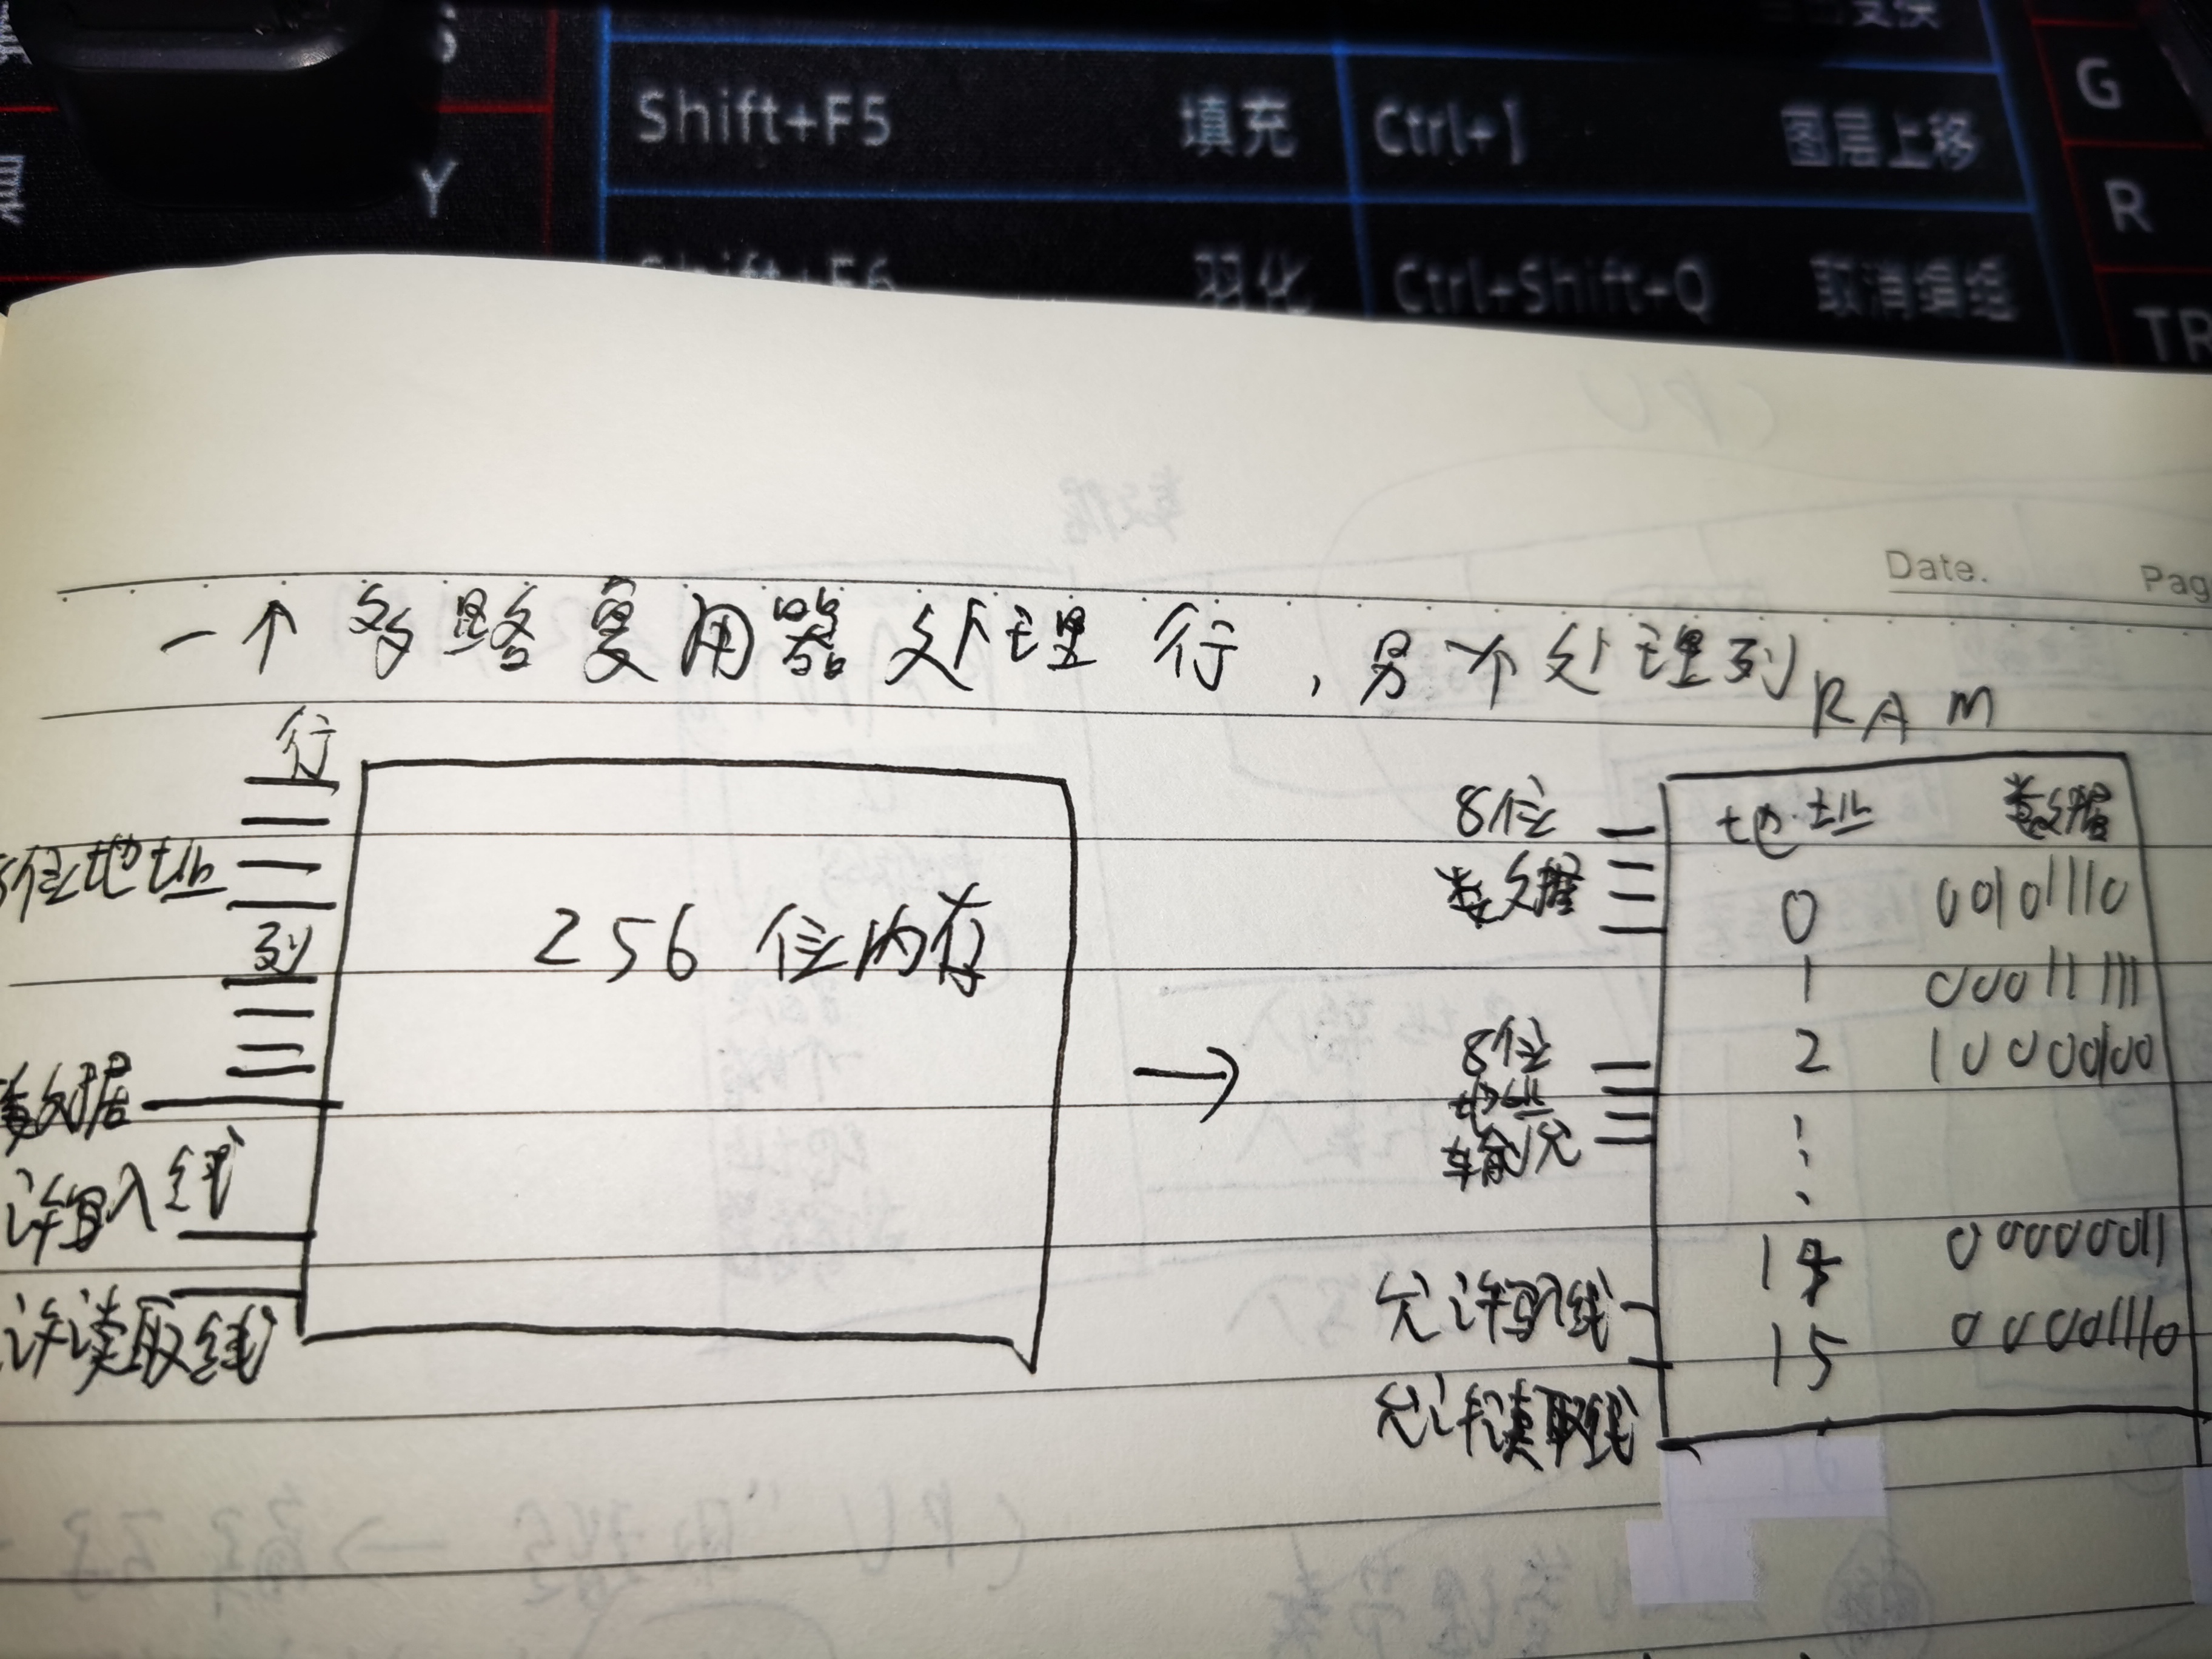 变换
Shift+F5 填充 Ctrl+] 图层上移 G
Y
羽化 Ctrl+Shift+Q 取消编组 R
TR
Date. Pag
一个多路复用器处理行，另一个处理列
RAM
行
位地址
列
数据
许写入线
许读取线
256位内存
→
8位
数据
8位
地址
输入
允许写入线
允许读取线
地址 数据
0 00101110
1 00011111
2 10000100
⋮
14 00000011
15 00001110